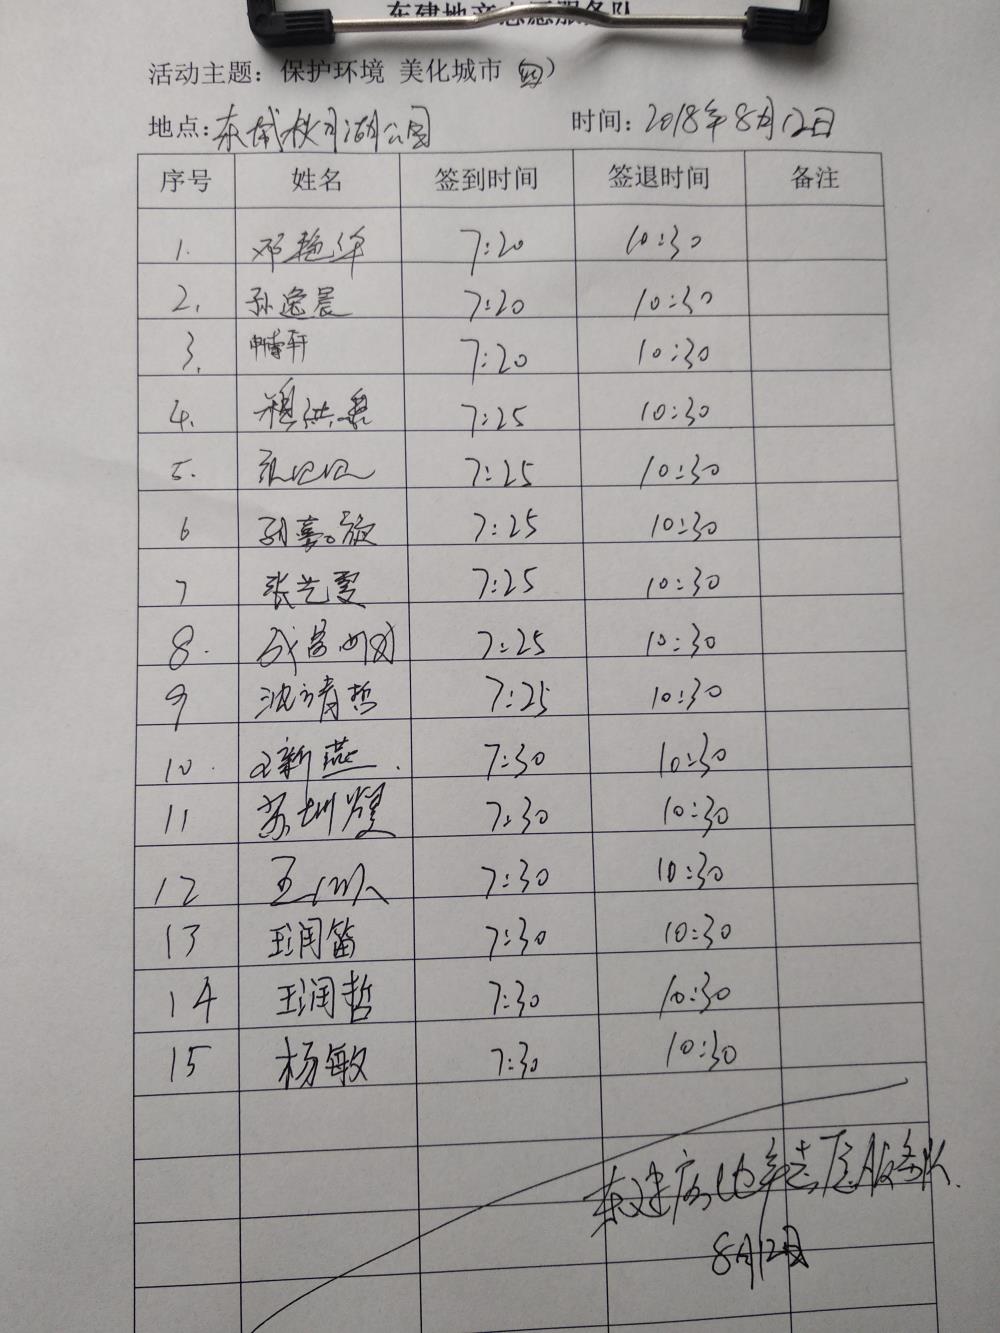 东建地产志愿服务队
活动主题：保护环境 美化城市 （四）
地点：东城秋月湖公园 时间：2018年8月12日
序号 姓名 签到时间 签退时间 备注
1. 邓艳华 7:20 10:30
2. 孙逸晨 7:20 10:30
3. 7:20 10:30
4. 7:25 10:30
5. 7:25 10:30
6 7:25 10:30
7 张艺雯 7:25 10:30
8. 7:25 10:30
9 沈靖哲 7:25 10:30
10. 新燕. 7:30 10:30
11 7:30 10:30
12 7:30 10:30
13 王润笛 7:30 10:30
14 王润哲 7:30 10:30
15 杨敏 7:30 10:30
东建房地产志愿服务队.
8月12日